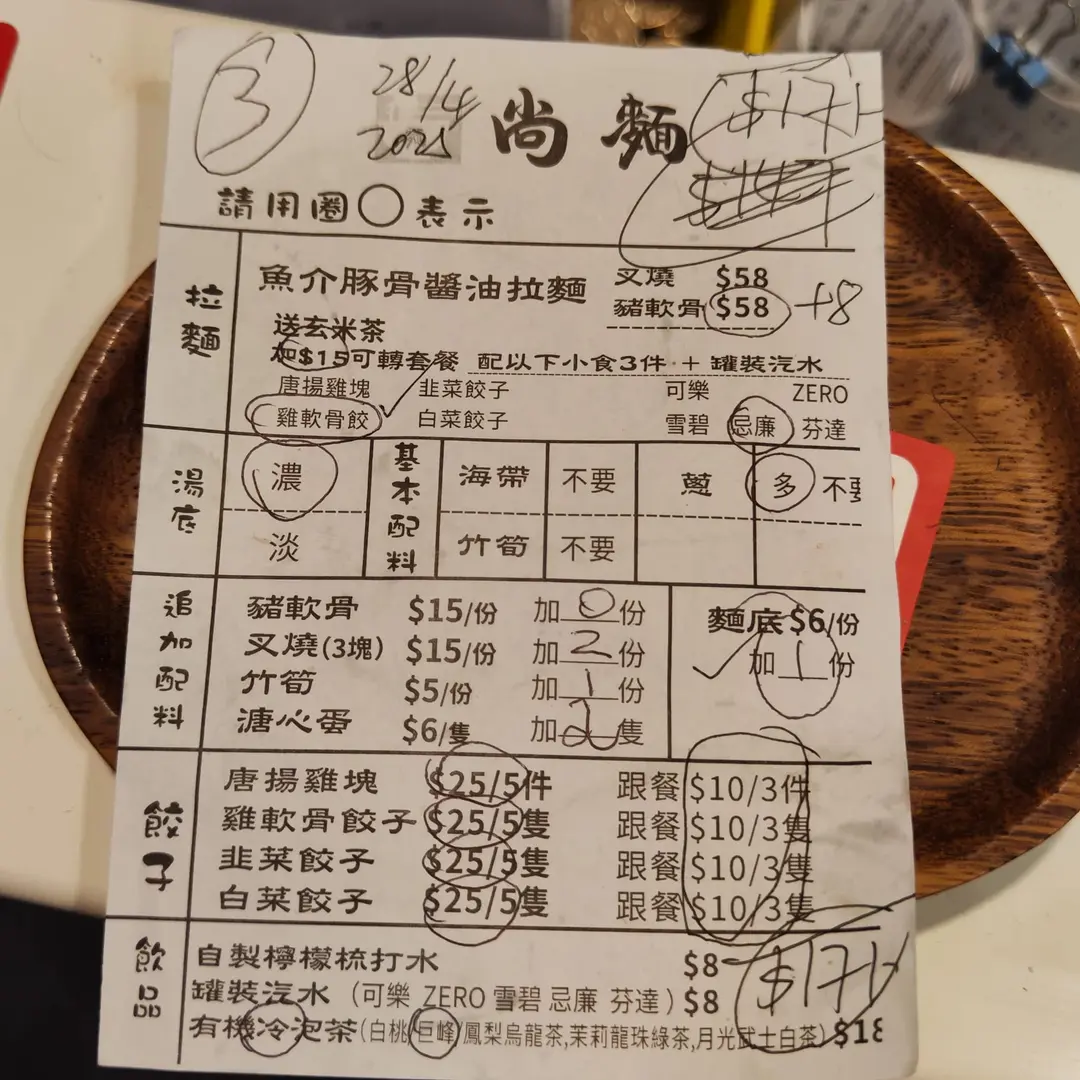 3
28/4
2025
尚麵
$171
請用圈○表示
拉麵
魚介豚骨醬油拉麵
叉燒 $58
豬軟骨 $58 +8
送玄米茶
加$15可轉套餐 配以下小食3件 + 罐裝汽水
唐揚雞塊 韭菜餃子 可樂 ZERO
雞軟骨餃 白菜餃子 雪碧 忌廉 芬達
湯底 濃 基本配料 海帶 不要 蔥 多 不要
淡 竹筍 不要
追加配料
豬軟骨 $15/份 加 0 份
叉燒(3塊) $15/份 加 2 份
竹筍 $5/份 加 1 份
溏心蛋 $6/隻 加 2 隻
麵底 $6/份
加 1 份
餃子
唐揚雞塊 $25/5件 跟餐 $10/3件
雞軟骨餃子 $25/5隻 跟餐 $10/3隻
韭菜餃子 $25/5隻 跟餐 $10/3隻
白菜餃子 $25/5隻 跟餐 $10/3隻
飲品
自製檸檬梳打水 $8
罐裝汽水 (可樂 ZERO 雪碧 忌廉 芬達) $8
有機冷泡茶(白桃/巨峰/鳳梨烏龍茶,茉莉龍珠綠茶,月光武士白茶) $18
$171